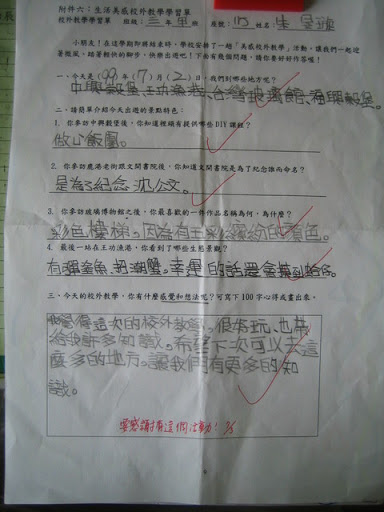 附件六：生活美感校外教學學習單
校外教學學習單 班級：三年甲班 座號：15 姓名：朱
小朋友！在這學期即將結束時，學校安排了一趟「美感校外教學」活動，讓我們一起迎
著微風，踏著輕快的腳步，快樂出遊吧！下面有幾個問題，請你要好好作答喔！
一、今天是（99）年（7）月（2）日，我們到哪些地方呢？
中興穀堡、王功漁港、台灣玻璃館、
二、請簡單介紹今天出遊的景點特色：
1. 你參訪中興穀堡後，你知道裡頭有提供哪些DIY課程？
做心飯團。
2. 你參訪鹿港老街跟文開書院後，你知道文開書院是為了紀念誰而命名？
是為了紀念沈公文。
3. 你參訪玻璃博物館之後，你最喜歡的一件作品名稱為何，為什麼？
彩色樓梯。因為有五彩繽紛的顏色。
4. 最後一站在王功漁港，你看到了哪些生態景觀？
有彈塗魚、招潮蟹。幸運的話還會摸到蛤仔。
三、今天的校外教學，你有什麼感覺和想法呢？可寫下100字心得或畫出來。
我覺得這次的校外教學，很好玩、也帶
給我許多知識。希望下次可以去這
麼多的地方。讓我們有更多的知
識。
要感謝有這個活動！